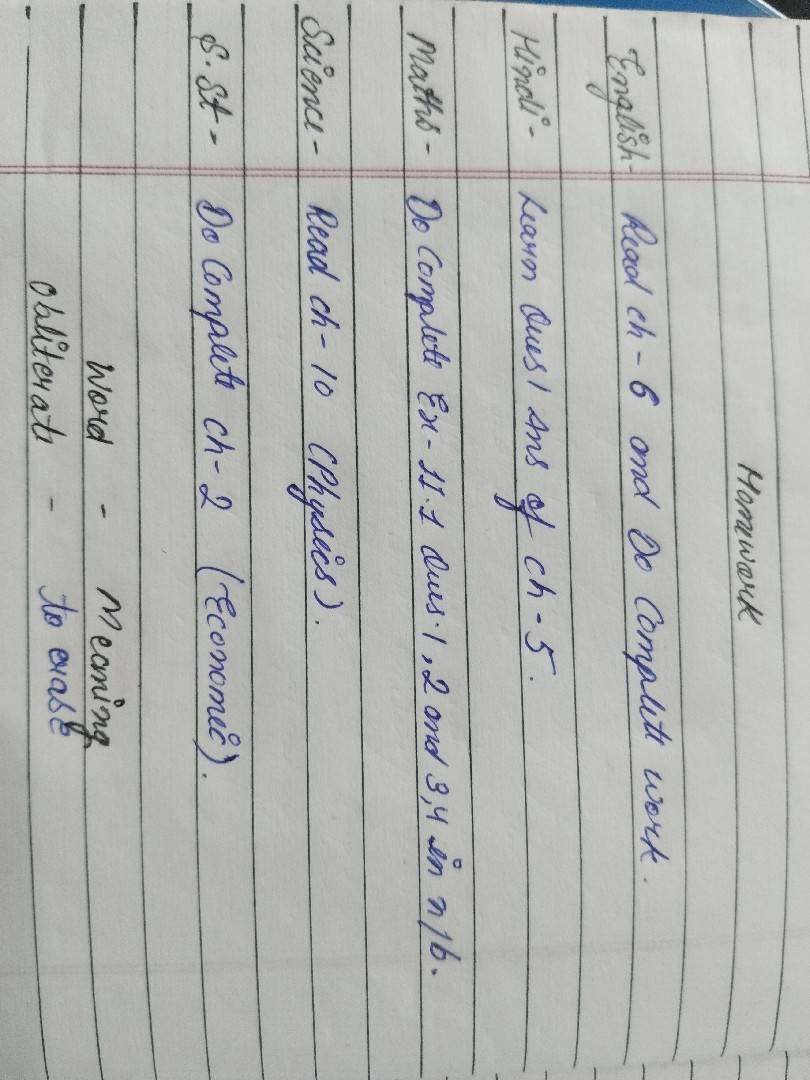 Homework
English- Read ch-6 and Do Complete work.
Hindi- Learn Ques/Ans of ch-5.
Maths- Do Complete Ex-11.1 Ques.1,2 and 3,4 in n/b.
Science- Read ch-10 (Physics).
S.St- Do Complete ch-2 (Economic).
Word - Meaning
Obliterate - to erase